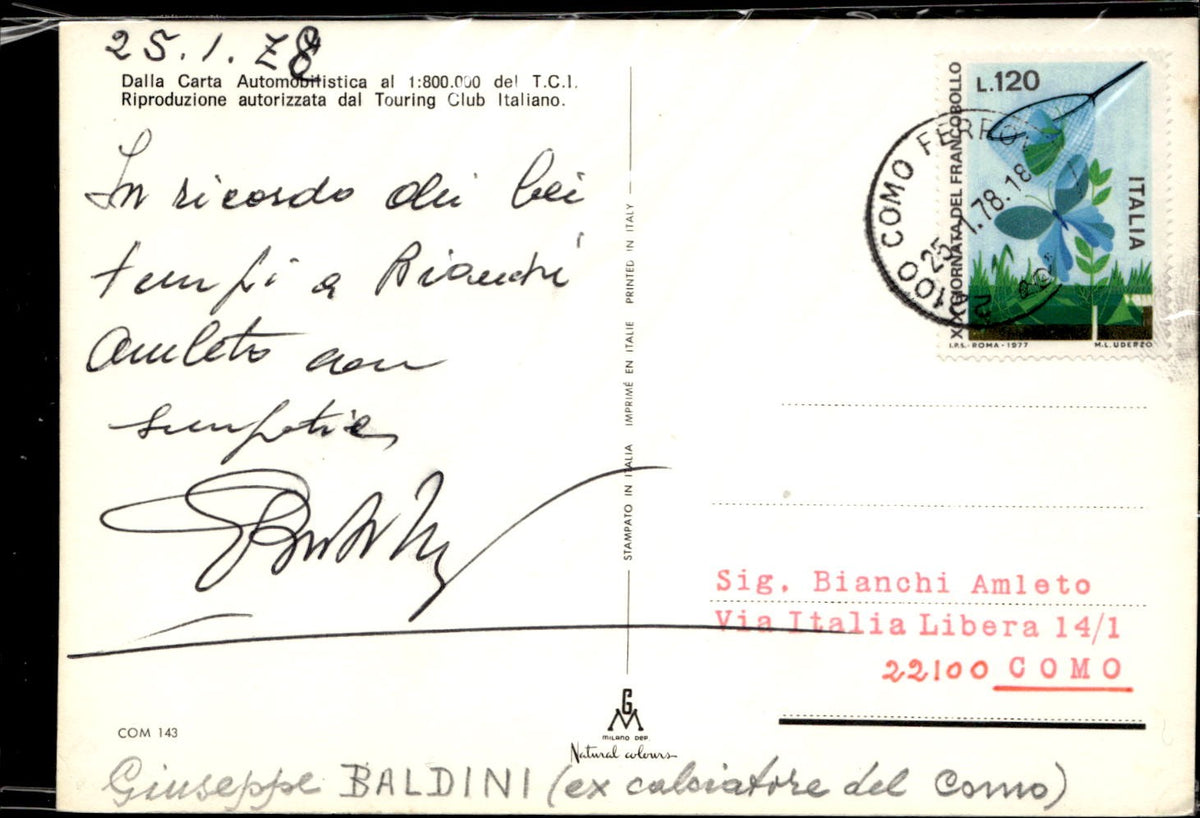 25.1.78
Dalla Carta Automobilistica al 1:800.000 del T.C.I.
Riproduzione autorizzata dal Touring Club Italiano.
In ricordo dei bei
tempi a Bianchi
Amleto con
simpatia
STAMPATO IN ITALIA IMPRIMÉ EN ITALIE PRINTED IN ITALY
L.120
XIX GIORNATA DEL FRANCOBOLLO
ITALIA
I.P.S.-ROMA-1977 M.L. UDERZO
22100 COMO FERROVIA
25.1.78.18
Sig. Bianchi Amleto
Via Italia Libera 14/1
22100 COMO
COM 143
GM
MILANO DEP.
Natural colours
Giuseppe BALDINI (ex calciatore del Como)